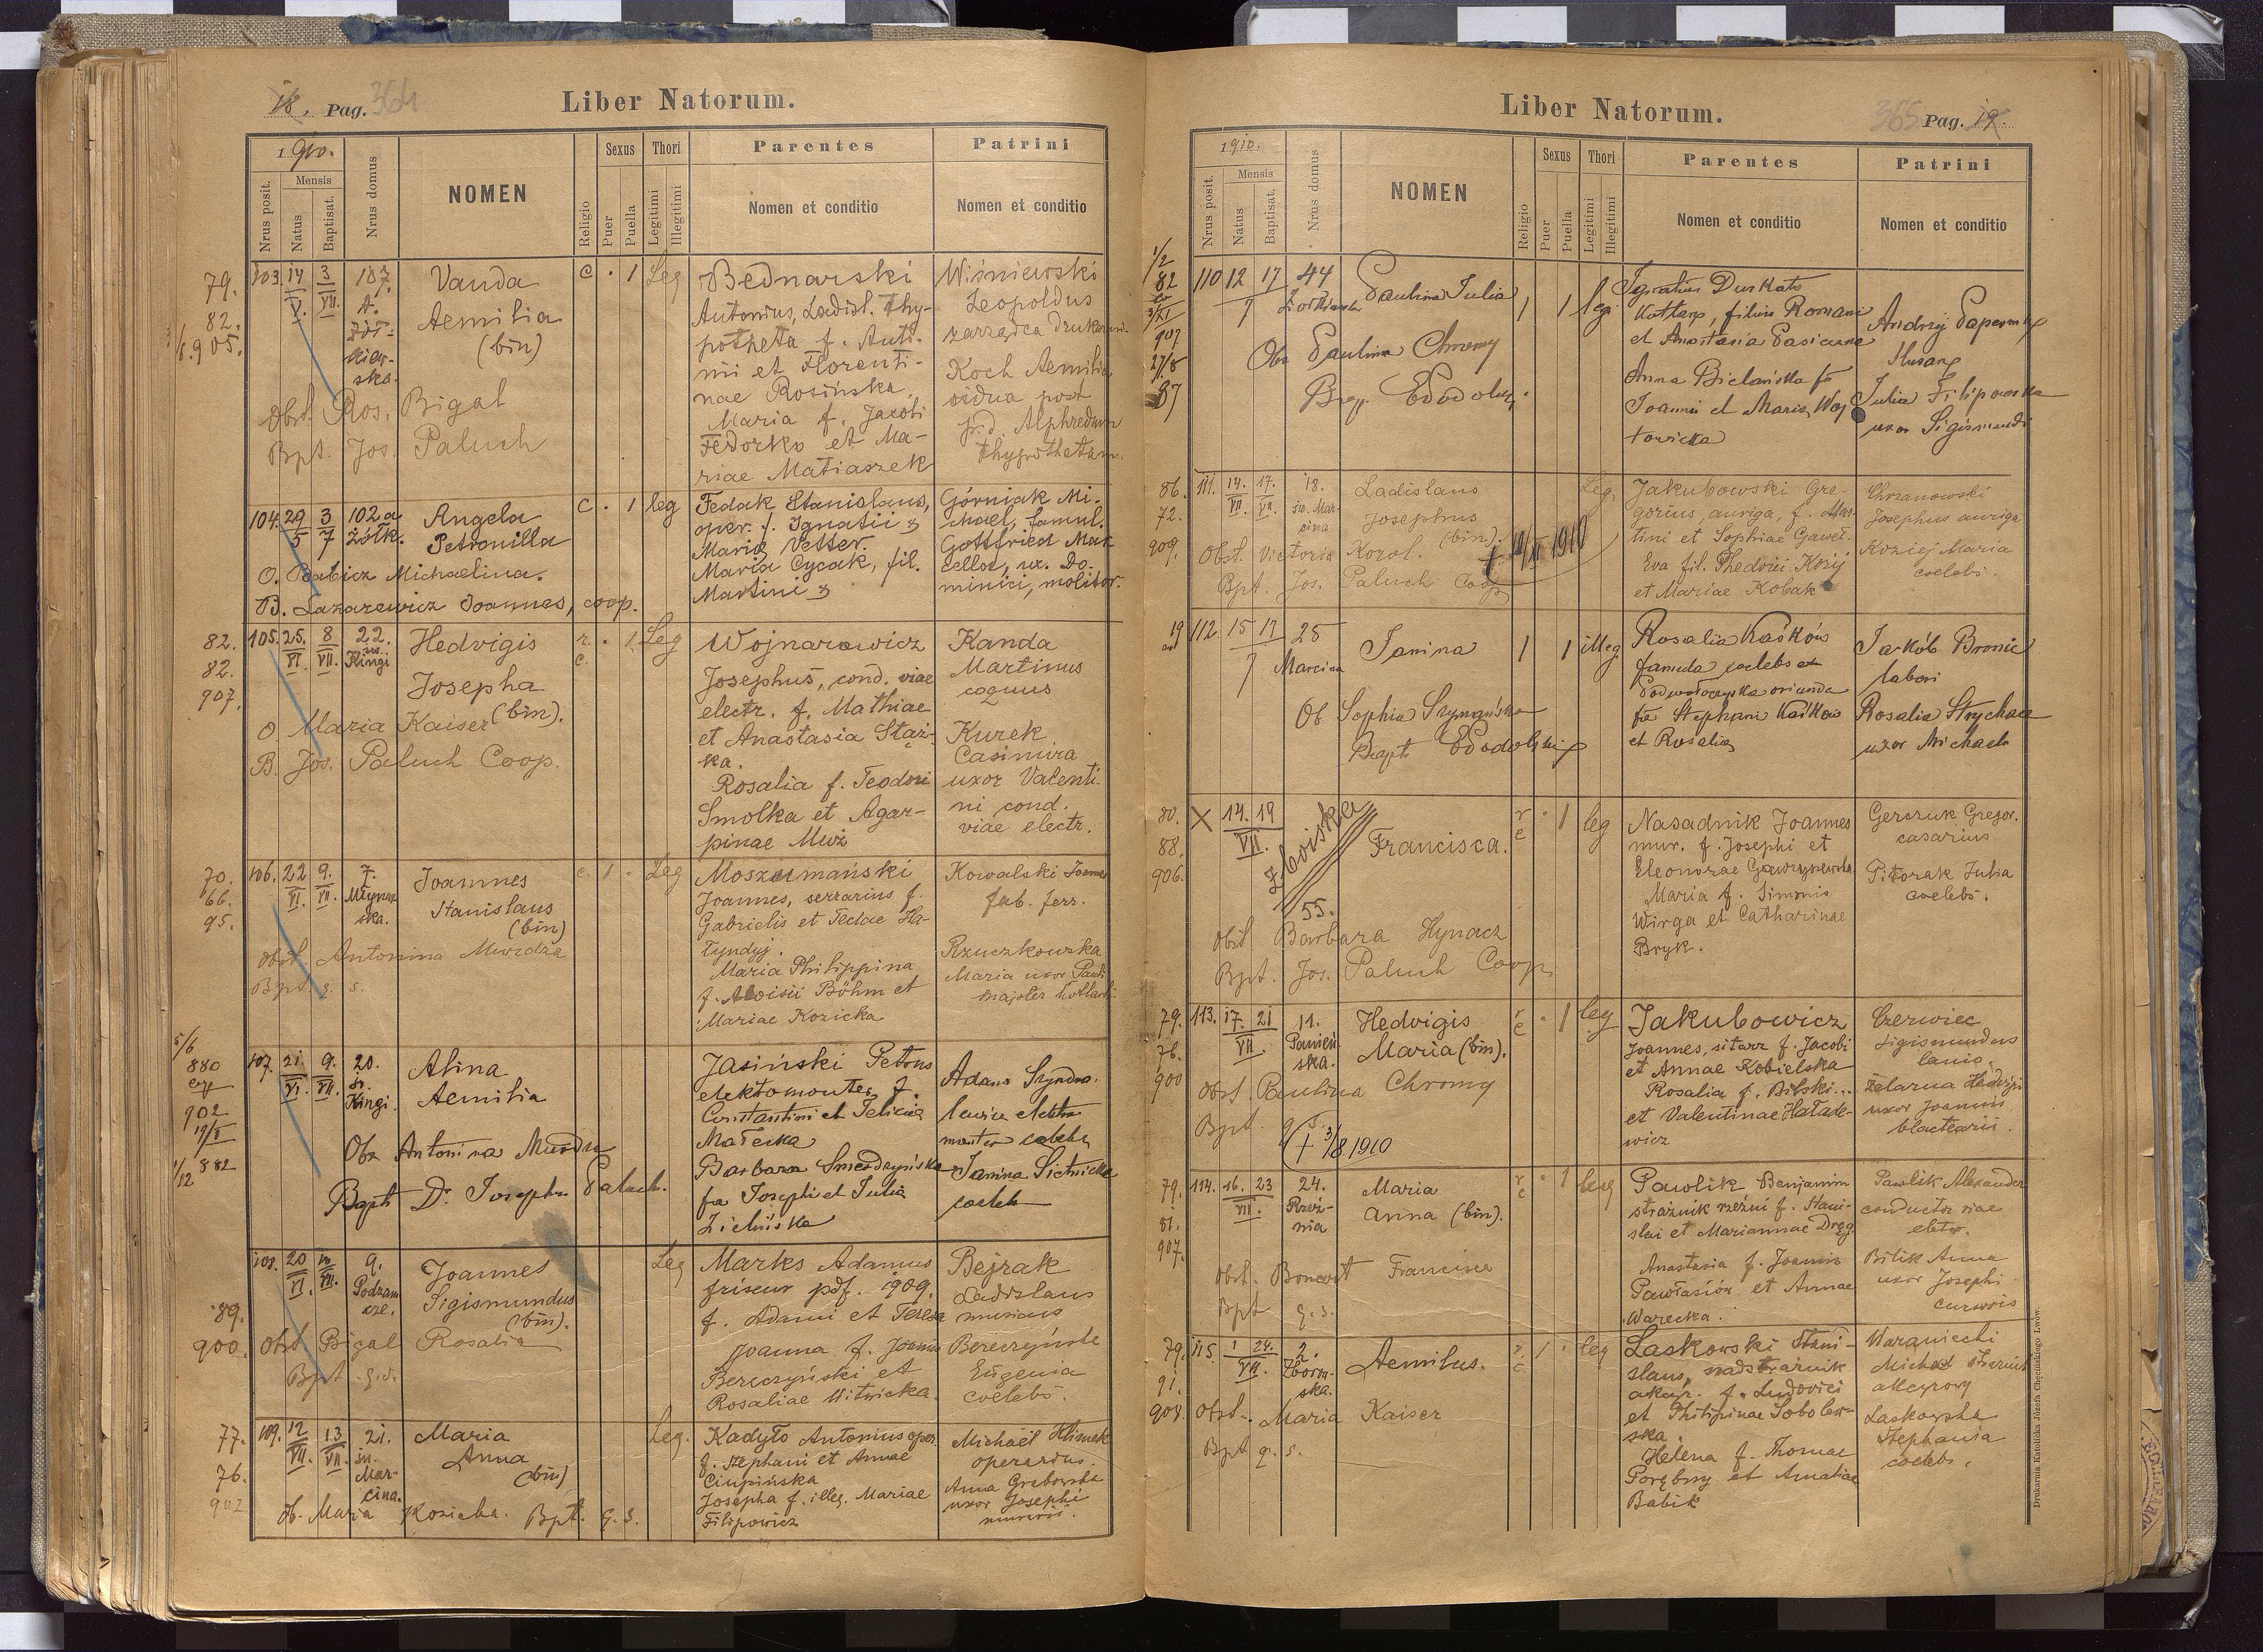 18. Pag. 364
Liber Natorum.
1910.
Nrus posit.
Mensis
Natus
Baptisat.
Nrus domus
NOMEN
Religio
Sexus
Puer
Puella
Thori
Legitimi
Illegitimi
Parentes
Nomen et conditio
Patrini
Nomen et conditio
79.
82.
905.
103. 14/V. 3/VII. 107.
A.
Żół-
kiew-
ska.
Vanda
Aemilia
(bin)
c · 1 Leg
Bednarski
Antonius, Ladisl. Thy-
potheta f. Anto-
ni et Florenti-
nae Rosińska,
Maria f. Jacobi
Fedorko et Ma-
riae Matiaszek
Wiśniewski
Leopoldus
zarządca drukarni.
Koch Aemilia
vidua post
p.d. Alphredum
thypothetam.
Obst. Ros. Bigal
Bpt. Jos. Paluch
104. 29/5 3/7 102a
Żółk.
Angela
Petronilla
c · 1 leg
Fedak Stanislaus,
oper. f. Ignatii &
Maria Vetter.
Maria Cycak, fil.
Martini &
Górniak Mi-
chael, famul.
Gottfried Mar
cella, ux. Do-
minici, molitor.
O. Babicz Michaelina.
B. Lazarewicz Joannes, coop.
82.
82.
907.
105. 25./VI. 8/VII. 22.
św.
Kingi
Hedvigis
Josepha
(bin).
r. c. · 1 Leg
Wojnarowicz
Josephus, cond. viae
electr. f. Mathiae
et Anastasia Staż-
ka.
Rosalia f. Teodori
Smolka et Agar-
pinae Muż
Kanda
Martinus
coquus
Kurek
Casimira
uxor Valenti-
ni cond.
viae electr.
O. Maria Kaiser
B. Jos. Paluch Coop.
70.
66.
95.
106. 22/VI. 9./VII. 7.
Młynar
ska.
Joannes
Stanislaus
(bin)
c. 1 · Leg
Moszumański
Joannes, serrarius f.
Gabrielis et Teclae Ha-
łyndyj.
Maria Philippina
f. Aloisii Böhm et
Mariae Kozicka
Kowalski Joannes
fab. ferr.
Rzuczkowska
Maria uxor Pauli
majster kotlarski
Obst. Antonina Murdza
Bpt. q. s.
5/6
880
902
19/I
1/12 882
107. 21./VI. 9./VII. 20.
św.
Kingi.
Alina
Aemilia
Jasiński Petrus
elektomonter f.
Constantini et Felicia
Małecka
Barbara Smerdzyńska
fa Josephi et Julia
Zielińska
Adam Szydło-
lewicz elektro
monter caleb
Janina Sietnicka
caeleb
Obs Antonina Murdza
Bapt Dr Josephus Paluch.
89.
900.
108. 20/VI. 10/VII. 9.
Podzam
cze.
Joannes
Sigismundus
(bin).
Leg
Marks Adamus
friseur pdf. 1909.
f. Adami et Teresa
Joanna f. Joannis
Bereczyński et
Rosaliae Witwicka.
Bejrak
Ladislaus
murarius
Bereczyńska
Eugenia
coelebs.
Obst Bigal Rosalia
Bpt q.s.
77.
76.
902
109. 12/VII. 13/VII. 21.
św.
Mar-
cina.
Maria
Anna
(bin)
Leg.
Kadyło Antonius oper.
f. Stephani et Annae
Ciupińska
Josepha f. illeg. Mariae
Filipowicz
Michaël Klimek
operarius.
Anna Grabowska
uxor Josephi
murarii.
Ob. Maria Kozicka. Bpt. q. s.
Liber Natorum.
365 Pag. 19.
1910.
Nrus posit.
Mensis
Natus
Baptisat.
Nrus domus
NOMEN
Religio
Sexus
Puer
Puella
Thori
Legitimi
Illegitimi
Parentes
Nomen et conditio
Patrini
Nomen et conditio
1/2
82
3/XI
907
27/8
87
110 12 17 44
7 Żółkiewska
Paulina Julia
1 1 leg
Ignatius Durkało
kotlarz, filius Romani
et Anastasia Pasieczna
Anna Bielańska fa
Joannis et Maria Woj
towicka
Andrzej Papierny
ślusarz
Julia Filipowska
uxor Sigismundi
Obs Paulina Chromy
Bap. E Podolski
86.
72.
909.
111. 14./VII. 17./VII. 18.
św. Mar-
cina
Ladislaus
Josephus
(bin).
Leg.
Jakubowski Gre-
gorius, auriga, f. Mar-
tini et Sophiae Gaweł.
Eva fil. Thedorii Kozij
et Mariae Kobak
Chrzanowski
Josephus auriga
Koziej Maria
coelebs.
Obst. Victoria Korol.
Bpt. Jos. Paluch Coop
1910
19
112. 15 17 25
7 Marcina
Janina
1 1 illeg.
Rosalia Kaśków
famula coelebs ex
Podwołoczyska oriunda
fa Stephani Kaśków
et Rosalia
Jakób Bronic
labori
Rosalia Strychacz
uxor Michaeli
Ob Sophia Szymańska
Bapt E Podolski
80.
88.
906.
X 14. 19
VII.
Zboiska
55.
Francisca.
r c · 1 leg
Nasadnik Joannes
mur. f. Josephi et
Eleonorae Gawrysewska
Maria f. Simonis
Wirga et Catharinae
Bryk.
Gerczuk Gregor.
casarius
Pitorak Julia
coelebs.
Obst. Barbara Hynacz
Bpt. Jos. Paluch Coop.
79.
76.
900
113. 17./VII. 21 11.
Panień
ska.
Hedvigis
Maria (bin).
r c · 1 leg
Jakubowicz
Joannes, sitarz f. Jacobi
et Annae Kobielska
Rosalia f. Bilski...
et Valentinae Haład-
wicz
Czerwiec
Sigismundus
lanio.
Żelazna Hedvigis
uxor Joannis
blactearii.
Obst. Paulina Chromy
Bpt. q. s.
(+ 3/8.1910
79.
81.
907.
114. 16./VII. 23 24.
Rzeź-
nia
Maria
Anna (bin).
r c · 1 leg
Pawlik Benjamin
strażnik rzeźni f. Stani-
slai et Mariannae Dręg
Anastasia f. Joannis
Pawłasión et Annae
Warecka.
Pawlik Alexander
conductor viae
eletr.
Bilik Anna
uxor Josephi
cursoris
Obst. Boncart Francisca
Bpt q. s.
79.
91.
908.
115. 1/VII. 24. 2.
Zborow-
ska.
Aemilus.
r. c. 1 · leg
Laskowski Stani-
slaus, nadstrażnik
akcyz. f. Ludovici
et Philippinae Sobolew-
ska.
Helena f. Thomae
Porębny et Amaliae
Babik
Waraniecki
Michael strażnik
akcyzowy
Laskowska
Stephania
coelebs.
Obst. Maria Kaiser
Bpt q. s.
Drukarnia Katolicka Józefa Chęcińskiego Lwów.